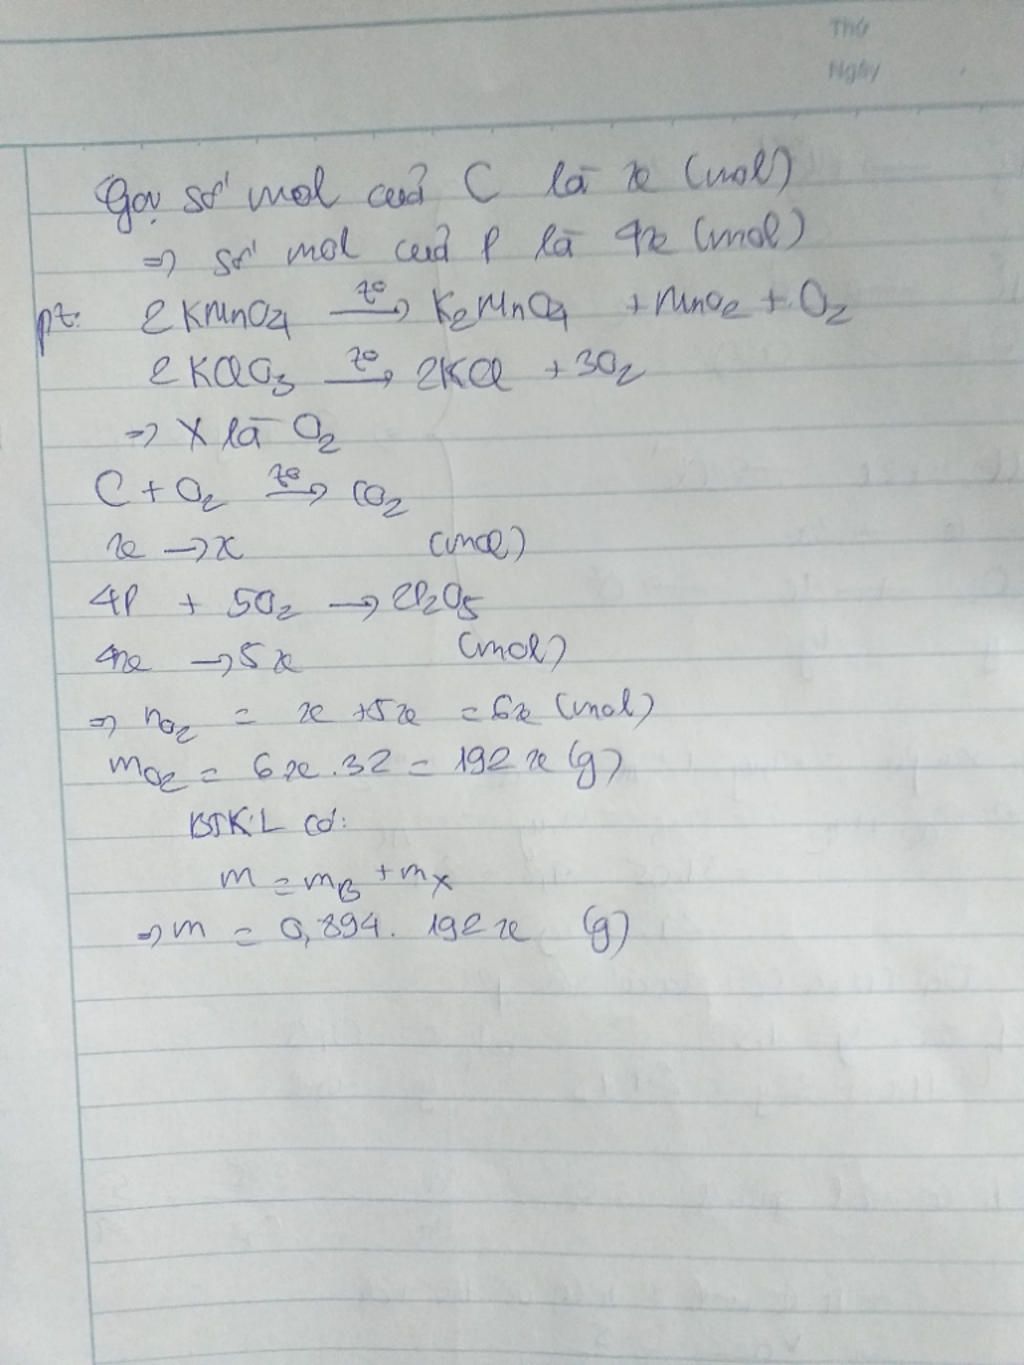 Thứ
Ngày
Gọi số mol của C là x (mol)
=> số mol của P là 4x (mol)
pt: 2KMnO4 t° → K2MnO4 + MnO2 + O2
2KClO3 t° → 2KCl + 3O2
=> X là O2
C + O2 t° → CO2
x → x (mol)
4P + 5O2 → 2P2O5
4x → 5x (mol)
=> nO2 = x + 5x = 6x (mol)
mO2 = 6x . 32 = 192x (g)
BTKL có:
m = mB + mX
=> m = 0,894 . 192x (g)